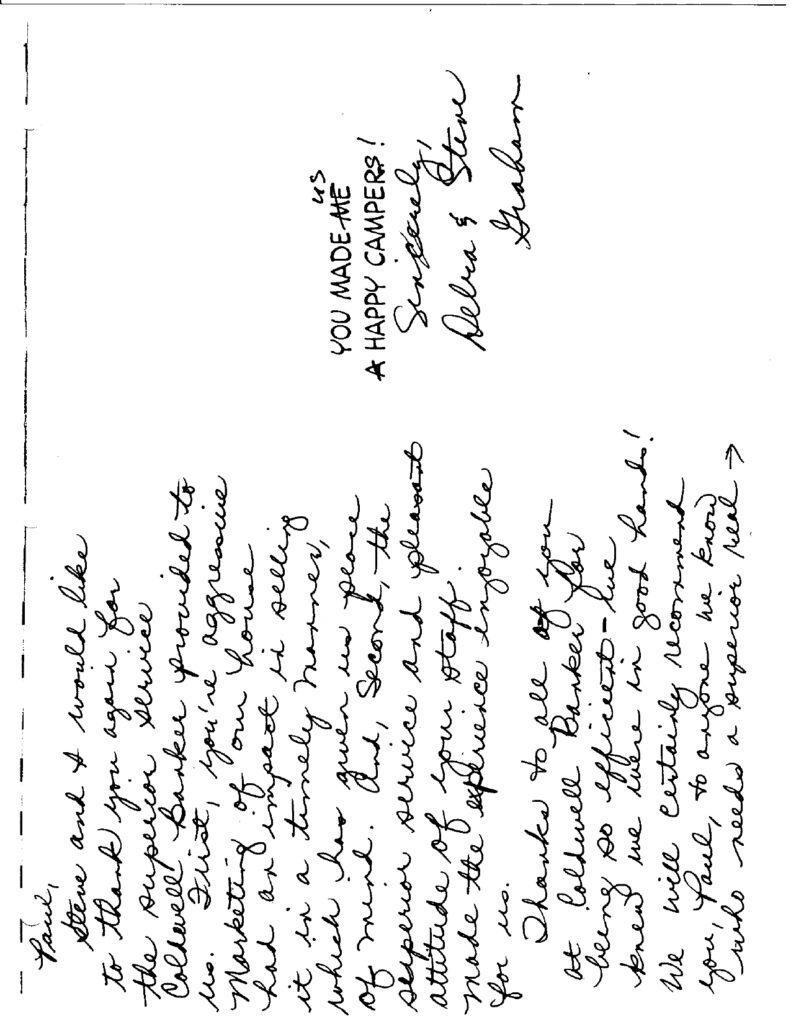 Paul,
Steve and I would like
to thank you again for
the superior service
Coldwell Banker provided to
us. First, you're aggressive
Marketing of our house
had an impact in selling
it in a timely manner,
which has given us peace
of mind. And, Second, the
superior service and pleasant
attitude of your staff
made the experience enjoyable
for us.
Thanks to all of you
at Coldwell Banker for
being so efficient - we
knew we were in good hands!
We will certainly recommend
you, Paul, to anyone we know
who needs a superior real →
us
YOU MADE ME
A HAPPY CAMPERS!
Sincerely,
Debra & Steve
Graham